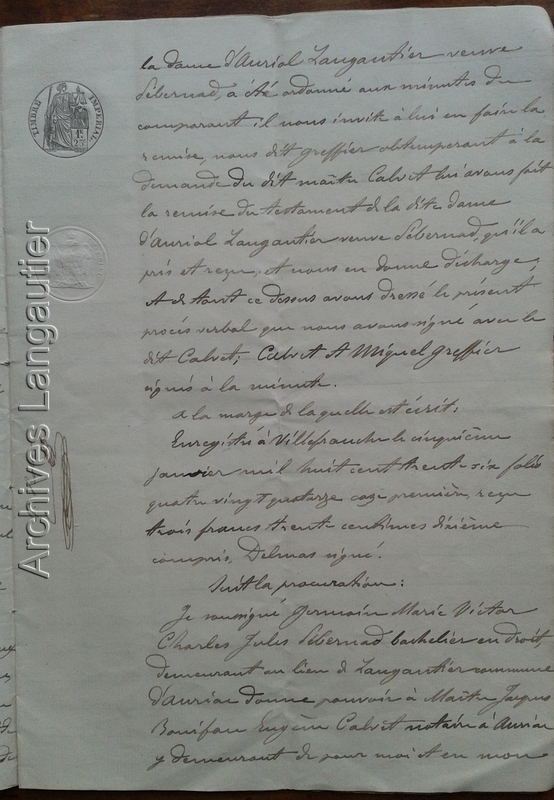 TIMBRE IMPERIAL
1F
la dame d'Auriol Langautier veuve
Pébernad, a été ordonné aux minutes du
comparant il nous invite à lui en faire la
remise, nous dit greffier obtemperant à la
demande du dit maître Calvet lui avons fait
la remise du testament de la dite dame
d'Auriol Langautier veuve Pébernad, qu'il a
pris et reçu, et nous en donne décharge,
et de tout ce dessus avons dressé le présent
procès verbal que nous avons signé avec le
dit Calvet; Calvet et Miquel greffier
signés à la minute.
A la marge de laquelle est écrit:
Enregistré à Villefranche le cinquième
janvier mil huit cent trente six folio
quatre vingt quatorze case première, reçu
trois francs trente centimes dixième
compris, Delmas signé.
Suit la procuration:
Je soussigné Germain Marie Victor
Charles Jules Pébernad bachelier en droit,
demeurant au lieu de Langautier commune
d'Auriac donne pouvoir à Maître Jacques
Bonifau Eugène Calvet notaire à Auriac
y demeurant de pour moi et en mon
Archives Langautier